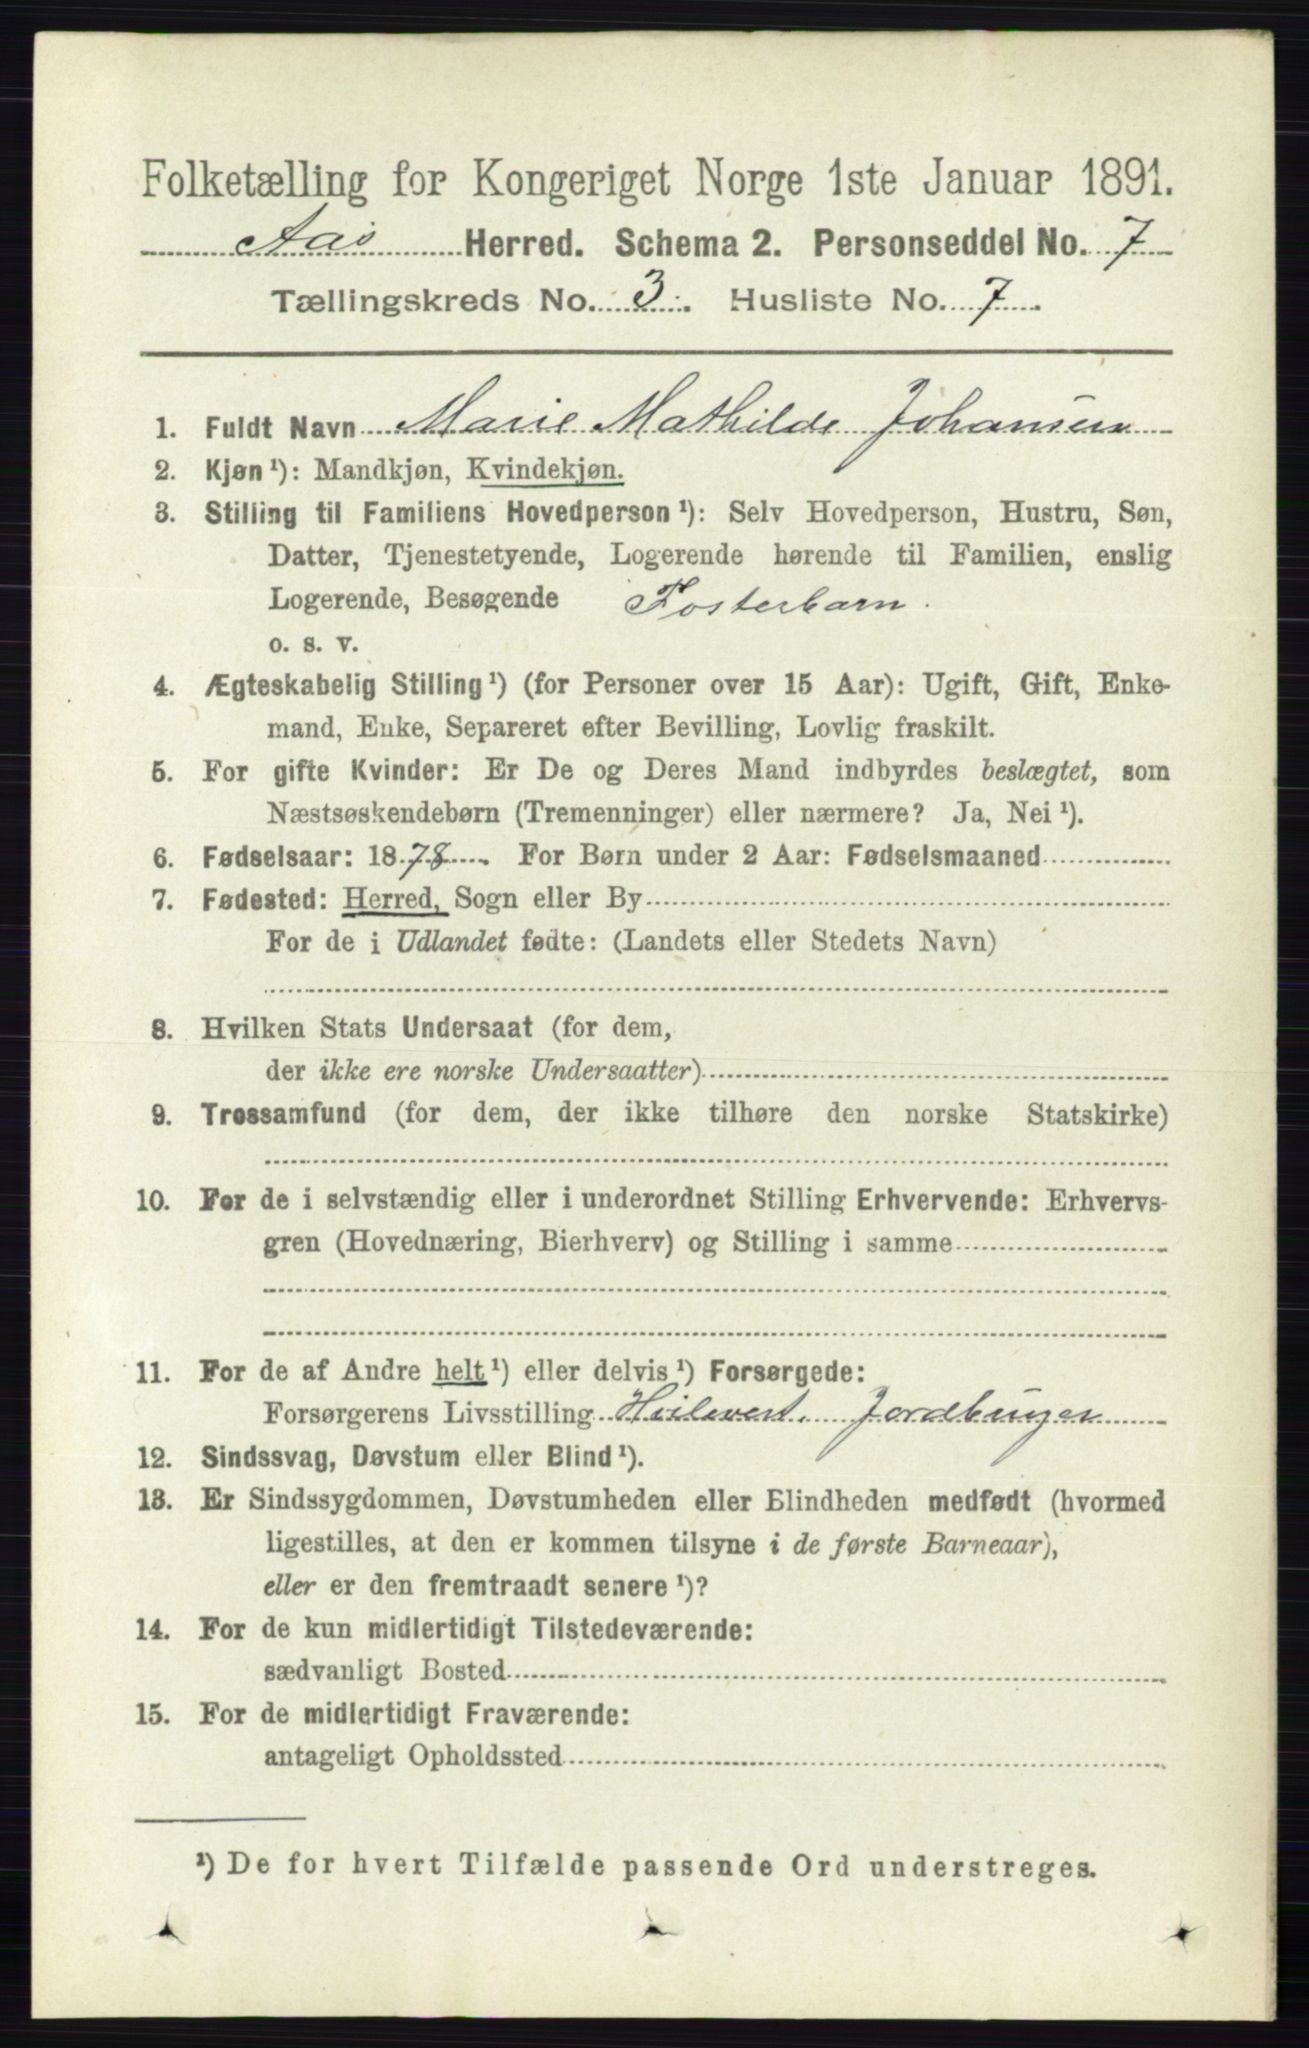 Folketælling for Kongeriget Norge 1ste Januar 1891.
Aas Herred. Schema 2. Personseddel No. 7
Tællingskreds No. 3. Husliste No. 7.
1. Fuldt Navn Marie Mathilde Johansen
2. Kjøn ¹): Mandkjøn, Kvindekjøn.
3. Stilling til Familiens Hovedperson ¹): Selv Hovedperson, Hustru, Søn,
Datter, Tjenestetyende, Logerende hørende til Familien, enslig
Logerende, Besøgende Fosterbarn.
o. s. v.
4. Ægteskabelig Stilling ¹) (for Personer over 15 Aar): Ugift, Gift, Enke-
mand, Enke, Separeret efter Bevilling, Lovlig fraskilt.
5. For gifte Kvinder: Er De og Deres Mand indbyrdes beslægtet, som
Næstsøskendebørn (Tremenninger) eller nærmere? Ja, Nei ¹).
6. Fødselsaar: 1878. For Børn under 2 Aar: Fødselsmaaned
7. Fødested: Herred, Sogn eller By
For de i Udlandet fødte: (Landets eller Stedets Navn)
8. Hvilken Stats Undersaat (for dem,
der ikke ere norske Undersaatter)
9. Trossamfund (for dem, der ikke tilhøre den norske Statskirke)
10. For de i selvstændig eller i underordnet Stilling Erhvervende: Erhvervs-
gren (Hovednæring, Bierhverv) og Stilling i samme
11. For de af Andre helt ¹) eller delvis ¹) Forsørgede:
Forsørgerens Livsstilling Jordbruger
12. Sindssvag, Døvstum eller Blind ¹).
13. Er Sindssygdommen, Døvstumheden eller Blindheden medfødt (hvormed
ligestilles, at den er kommen tilsyne i de første Barneaar),
eller er den fremtraadt senere ¹)?
14. For de kun midlertidigt Tilstedeværende:
sædvanligt Bosted
15. For de midlertidigt Fraværende:
antageligt Opholdssted
¹) De for hvert Tilfælde passende Ord understreges.